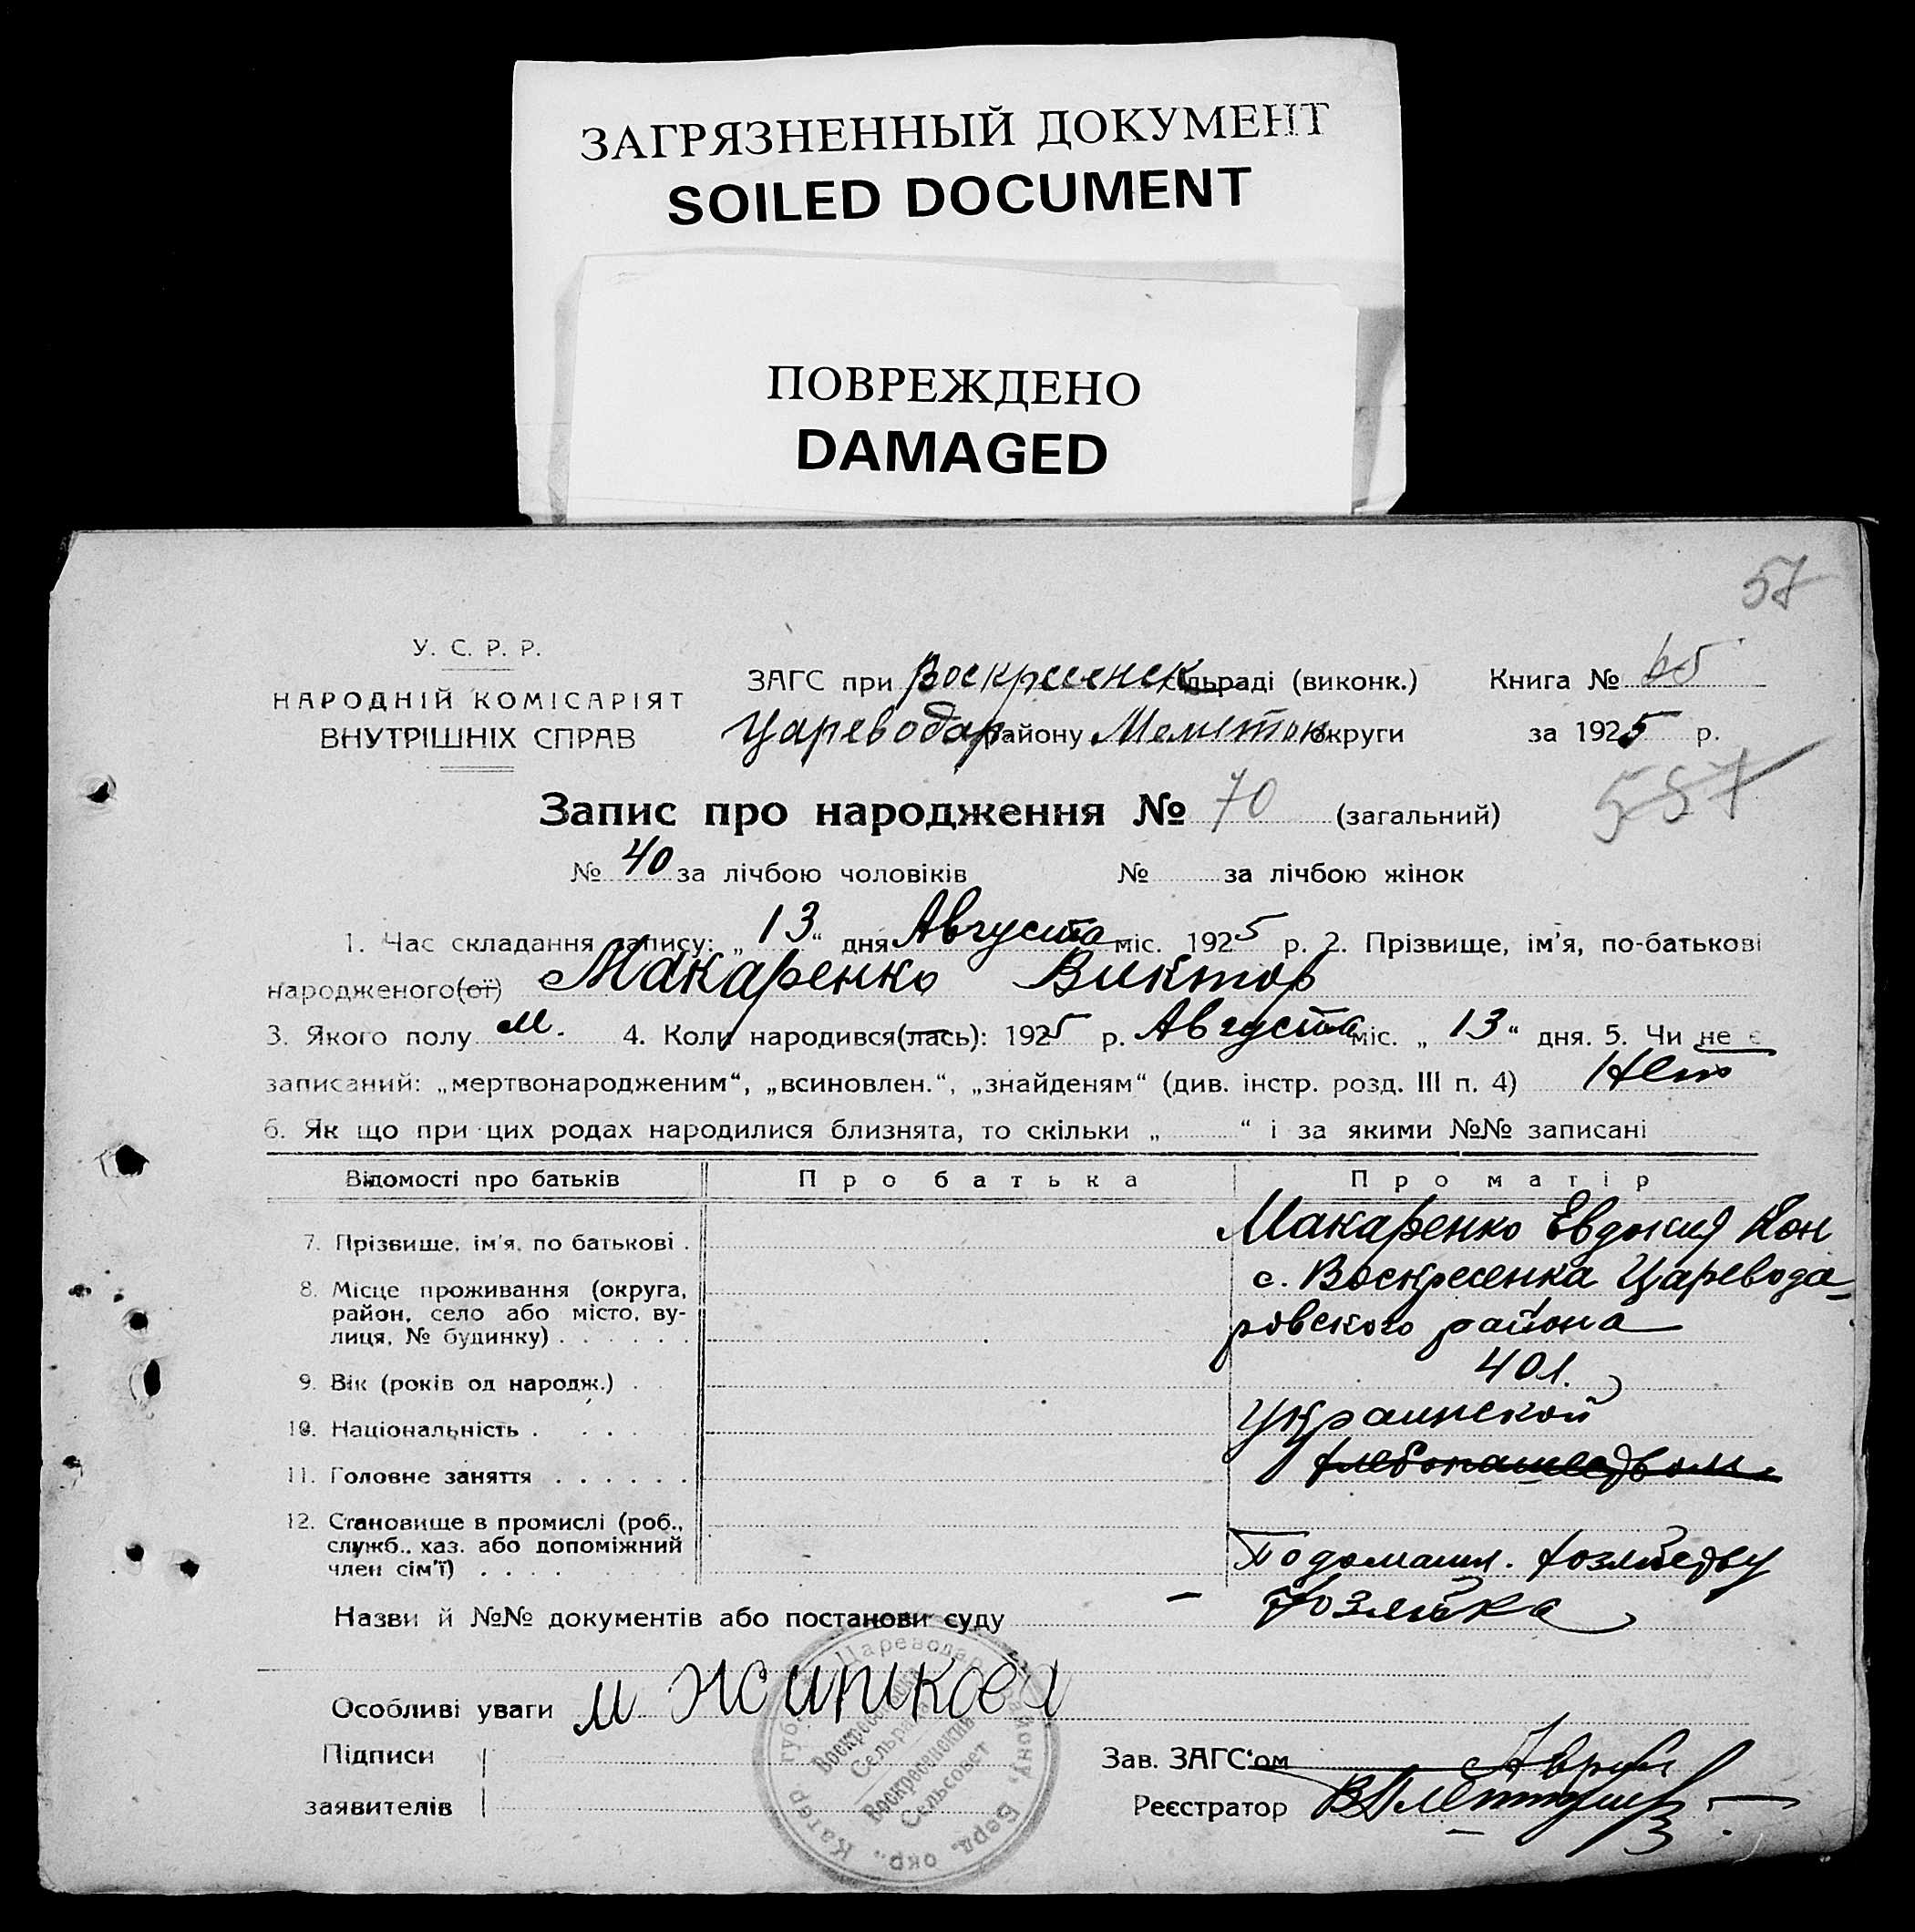 ЗАГРЯЗНЕННЫЙ ДОКУМЕНТ
SOILED DOCUMENT
ПОВРЕЖДЕНО
DAMAGED
57
У. С. Р. Р.
НАРОДНІЙ КОМІСАРІЯТ
ВНУТРІШНІХ СПРАВ
ЗАГС при Воскресенск сільраді (виконк.) Книга №
Цареводар району Мелітоп округи за 1925 р.
Запис про народження № 70 (загальний)
557
№ 40 за лічбою чоловіків № за лічбою жінок
1. Час складання запису: „ 13 “ дня Августа міс. 1925 р. 2. Прізвище, ім'я, по-батькові
народженого(ої) Макаренко Виктор
3. Якого полу м. 4. Коли народився(лась): 1925 р. Августа міс. „ 13 “ дня. 5. Чи не є
записаний: „мертвонародженим“, „всиновлен.“, „знайденям“ (див. інстр. розд. III п. 4) Нет
6. Як що при цих родах народилися близнята, то скільки „ “ і за якими №№ записані
Відомості про батьків Про батька Про матір
7. Прізвище, ім'я, по батькові . Макаренко Евдокия Кон
8. Місце проживання (округа, с. Воскресенка Царевода-
район, село або місто, ву-
лиця, № будинку) . . . . . . ровского района
9. Вік (років од народж.) . 40 л.
10. Національність . . . . Украинской
11. Головне заняття . . . . . . хлебопашеством
12. Становище в промислі (роб.,
служб., хаз. або допоміжний По домашн. хозяйству
член сім'ї) . . . .
Назви й №№ документів або постанови суду – хозяйка
Особливі уваги м
Цареводар. району, Берд. окр., Катер. губ.
Воскресенська
Сельрада
Воскресенский
Сельсовет
Підписи
заявителів
Зав. ЗАГС'ом
Реєстратор